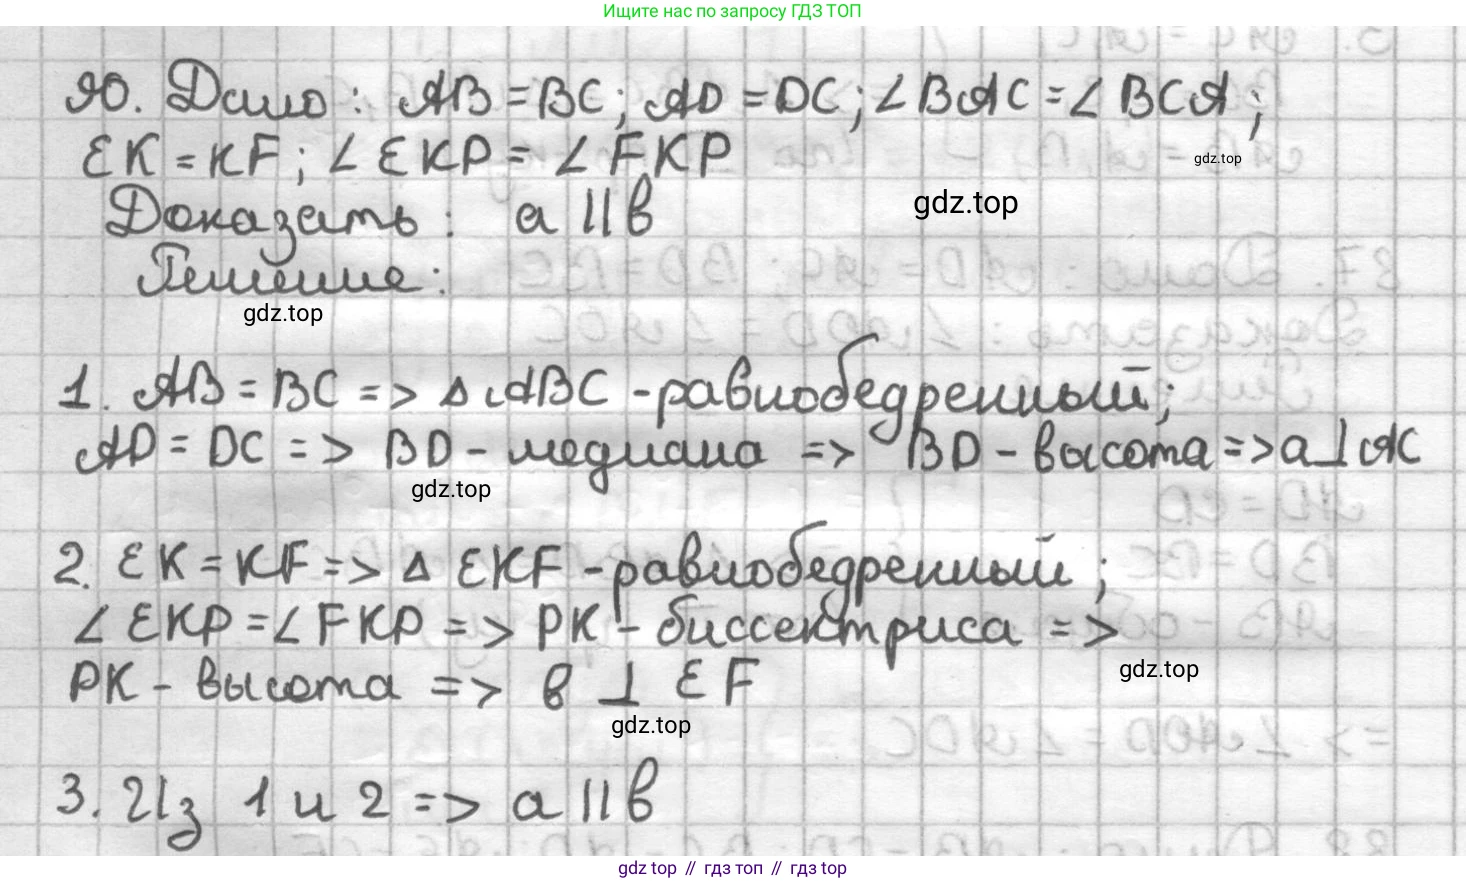 Ищите нас по запросу ГДЗ ТОП
90. Дано: AB = BC; AD = DC; ∠BAC = ∠BCA;
gdz.top
EK = KF; ∠EKP = ∠FKP
gdz.top
Доказать: a || b
Решение:
gdz.top
1. AB = BC => Δ ABC - равнобедренный;
AD = DC => BD - медиана => BD - высота => a ⊥ AC
gdz.top
2. EK = KF => Δ EKF - равнобедренный;
∠EKP = ∠FKP => PK - биссектриса =>
gdz.top
PK - высота => b ⊥ EF
gdz.top
3. Из 1 и 2 => a || b
gdz top // гдз топ // гдз top